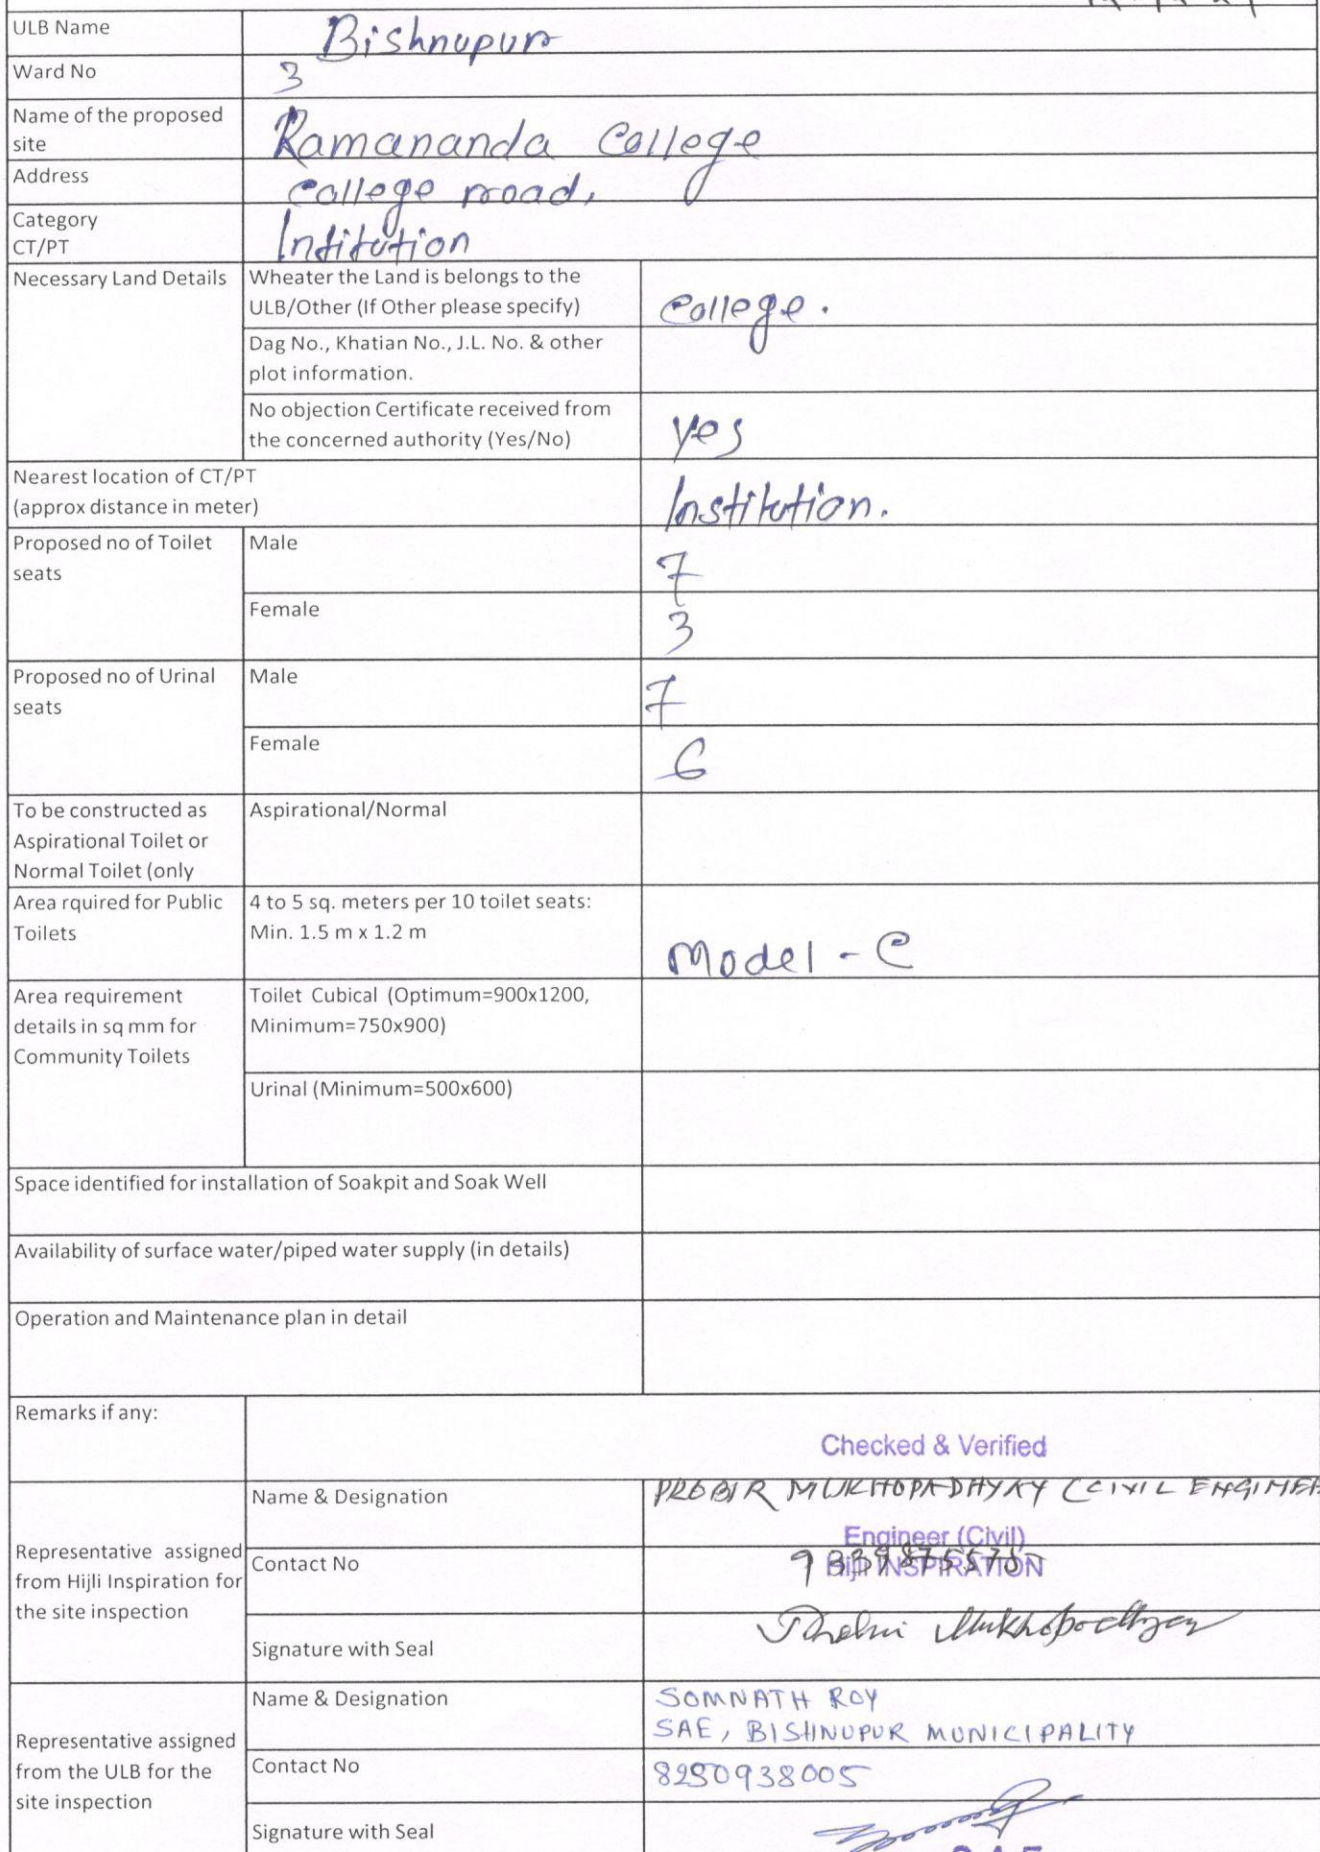 ULB Name
Bishnupur
Ward No
3
Name of the proposed
site
Ramananda College
Address
College road,
Category
CT/PT
Intitution
Necessary Land Details
Wheater the Land is belongs to the
ULB/Other (If Other please specify)
College.
Dag No., Khatian No., J.L. No. & other
plot information.
No objection Certificate received from
the concerned authority (Yes/No)
yes
Nearest location of CT/PT
(approx distance in meter)
Institution.
Proposed no of Toilet
seats
Male
7
Female
3
Proposed no of Urinal
seats
Male
7
Female
6
To be constructed as
Aspirational Toilet or
Normal Toilet (only
Aspirational/Normal
Area rquired for Public
Toilets
4 to 5 sq. meters per 10 toilet seats:
Min. 1.5 m x 1.2 m
Model - C
Area requirement
details in sq mm for
Community Toilets
Toilet Cubical (Optimum=900x1200,
Minimum=750x900)
Urinal (Minimum=500x600)
Space identified for installation of Soakpit and Soak Well
Availability of surface water/piped water supply (in details)
Operation and Maintenance plan in detail
Remarks if any:
Checked & Verified
Representative assigned
from Hijli Inspiration for
the site inspection
Name & Designation
PROBIR MUKHOPADHYAY (CIVIL ENGINEER
Engineer (Civil)
Contact No
Hijli INSPIRATION
Signature with Seal
Probir Mukhopadhyay
Representative assigned
from the ULB for the
site inspection
Name & Designation
SOMNATH ROY
SAE, BISHNUPUR MUNICIPALITY
Contact No
8250938005
Signature with Seal